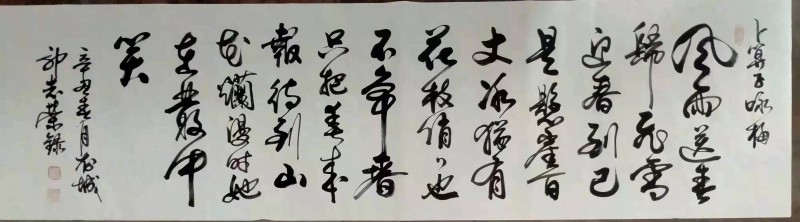 卜算子咏梅
风雨送春
歸飞雪
迎春到已
是懸崖百
丈冰猶有
花枝俏〻也
不争春
只把春来
報待到山
花爛漫时她
在叢中
笑
辛丑春月於城
郭志荣録